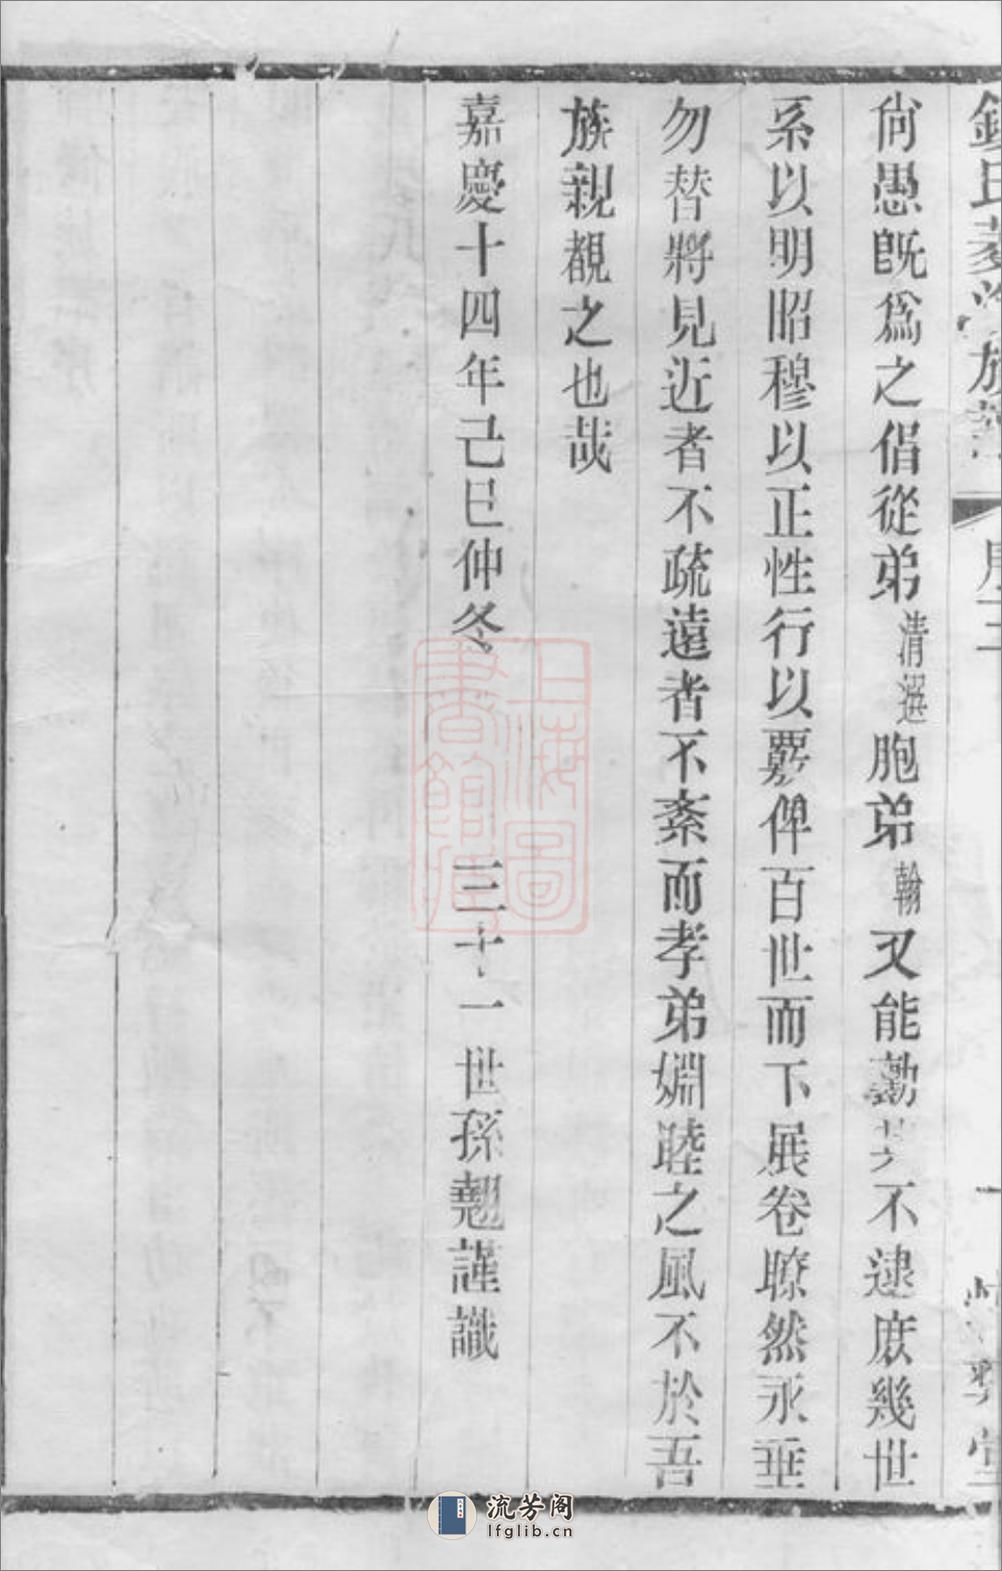 尙愚旣爲之倡從弟清選胞弟翰又能勷其不逮庶幾世
系以明昭穆以正性行以覈俾百世而下展卷瞭然永垂
勿替將見近者不疏遠者不紊而孝弟婣睦之風不於吾
族親覩之也哉
嘉慶十四年己巳仲冬 三十一世孫翹謹識
上海圖書館藏
流芳阁
lfglib.cn